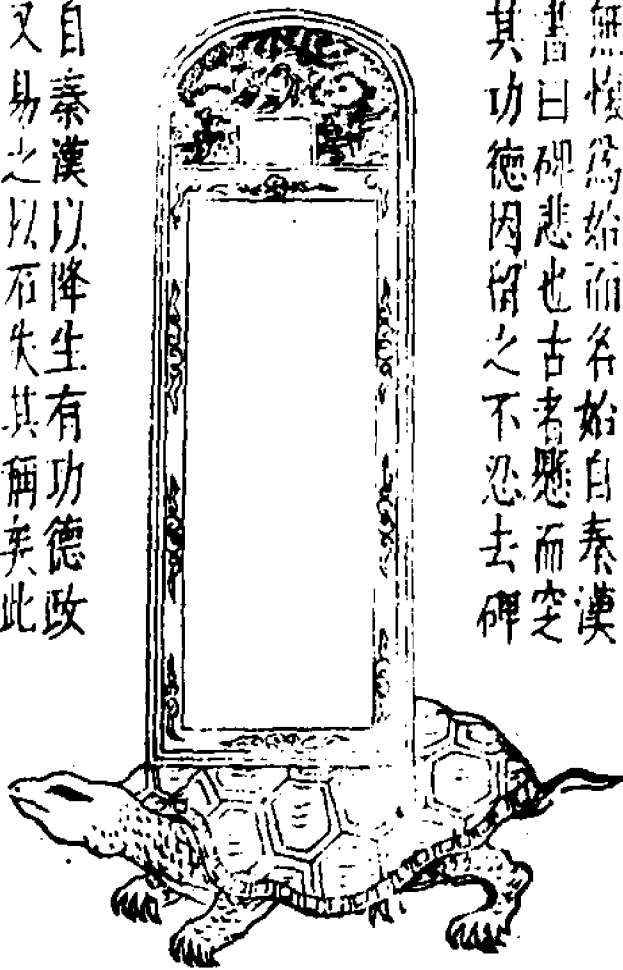 無懷為始而名始自秦漢
書曰碑悲也古者懸而窆
其功德因留之不忍去碑
自秦漢以降生有功德政
又易之以石失其稱矣此